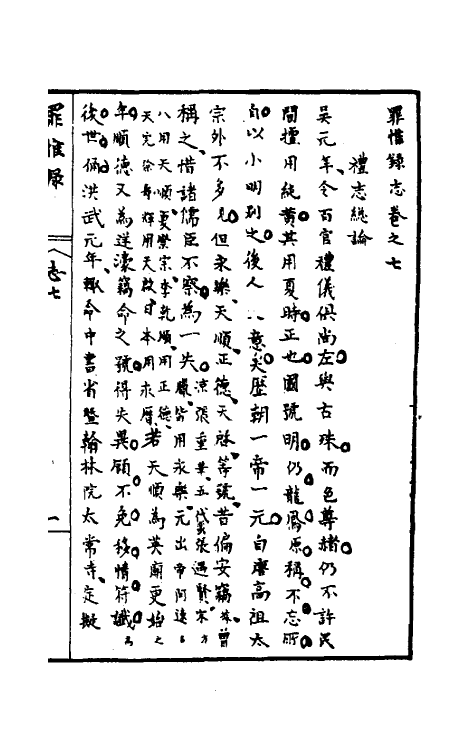 罪惟錄志卷之七
禮志總論
吳元年令百官禮儀俱尚左與古殊而色尊赭仍不許民
間擅用純黃其用夏時正也國號明仍龍鳳原稱不忘所
自以小明別之後人意矣歷朝一帝一元自唐高祖太
宗外不多見但永樂天順正德天啓等號昔偏安竊曾
稱之惜諸儒臣不察為一失涼張重華五代張遇賢宋方臘皆用永樂元出帝阿速吉
八用天順夏崇宗李乾順用正德天完徐壽輝用天啟日本用永曆若天順為英廟更始之
年順德又為逆濠竊命之號得失異顧不免移情符讖為
後世俑洪武元年輙命中書省暨翰林院太常寺定擬
罪惟錄
志七
一